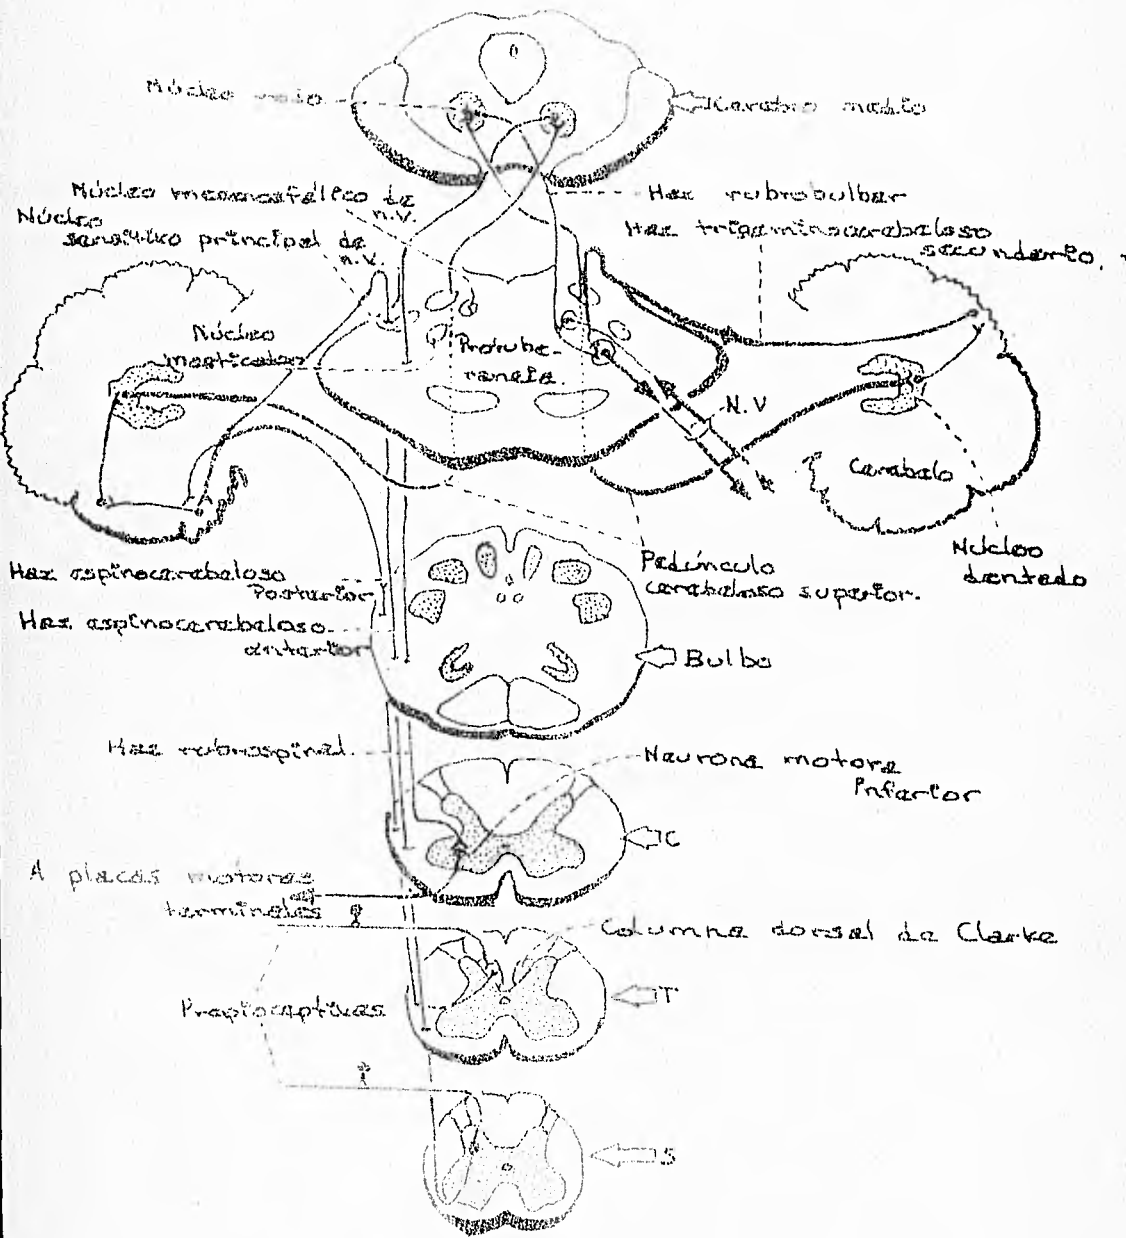 Núcleo rojo
Cerebro medio
Núcleo mesencefálico de
n.V.
Haz rubrobulbar
Núcleo
sensitivo principal de
n.V.
Haz trigeminocerebeloso
secundario.
Núcleo
masticator
Protube-
rancia.
N.V
Cerebelo
Núcleo
dentado
Haz espinocerebeloso
Posterior
Pedúnculo
cerebeloso superior.
Haz espinocerebeloso
anterior
Bulbo
Haz rubrospinal.
Neurona motora
Inferior
C
A placas motoras
terminales
Columna dorsal de Clarke
T
Propioceptivas
S